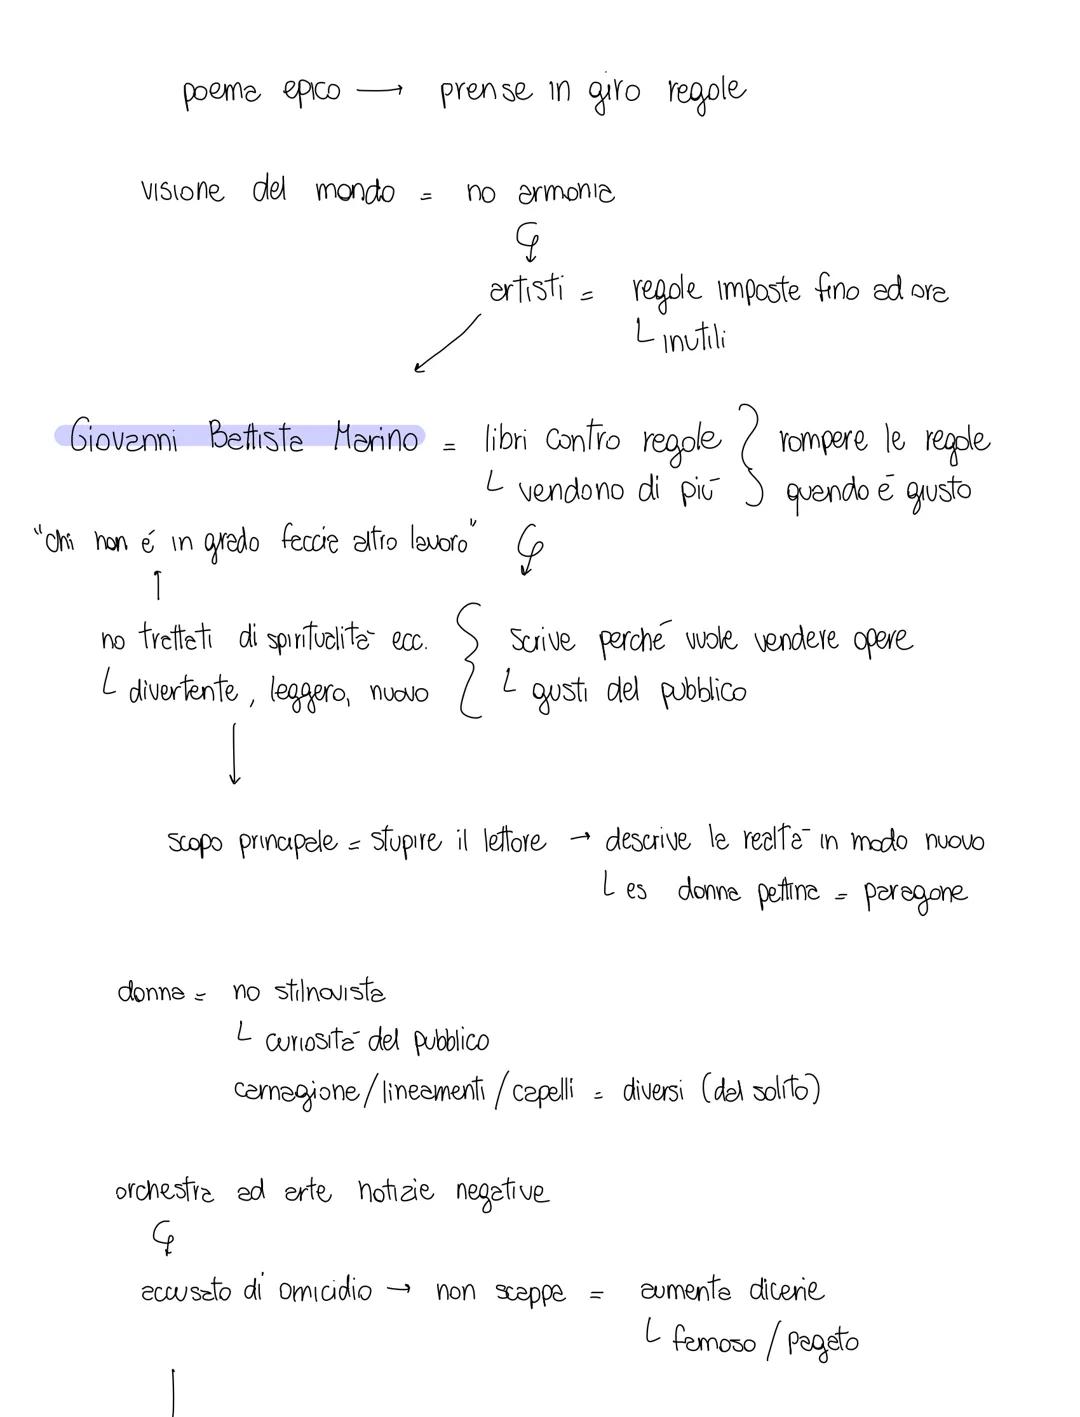 poema epico → prense in giro regole
visione del mondo = no armonia
artisti = regole imposte fino ad ora
inutili
Giovanni Battista Marino = libri contro regole } rompere le regole
vendono di più } quando é giusto
"chi non é in grado faccia altro lavoro"
no trattati di spiritualità ecc. { scrive perché vuole vendere opere
divertente, leggero, nuovo { gusti del pubblico
scopo principale = stupire il lettore → descrive la realtà in modo nuovo
es donna pettina = paragone
donna = no stilnovista
curiosità del pubblico
carnagione/lineamenti/capelli = diversi (dal solito)
orchestra ad arte notizie negative
accusato di omicidio → non scappa = aumenta dicerie
famoso/pagato